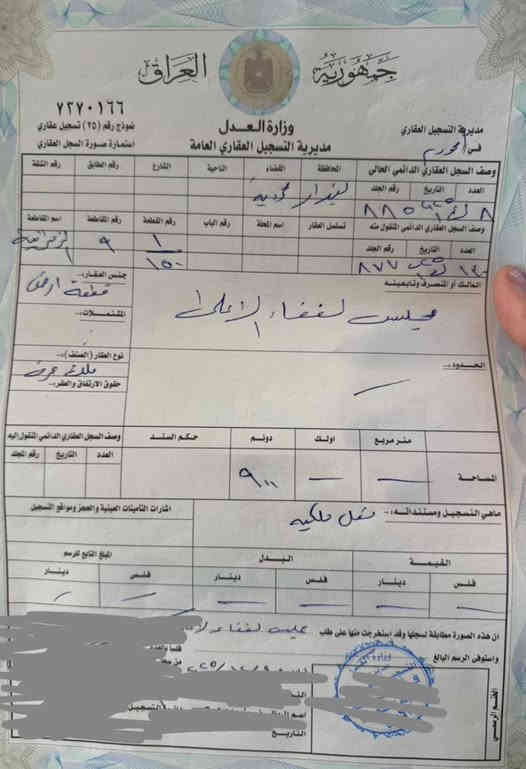 جمهورية العراق
٧٢٧٠١٦٦
وزارة العدل
مديرية التسجيل العقاري العامة
نموذج رقم (٢٥) تسجيل عقاري
استمارة صورة السجل العقاري
مديرية التسجيل العقاري
في
وصف السجل العقاري الدائمي الحالي
المحافظة القضاء الناحية الشارع رقم الطابق رقم الشقة
العدد التاريخ رقم الجلد
بغداد
٨٨٥
وصف السجل العقاري الدائمي المنقول منه
تسلسل العقار اسم المحلة رقم الباب رقم القطعة رقم المقاطعة اسم المقاطعة
العدد التاريخ رقم الجلد
٨٧٧
١
١٥٠
٩
المالك أو المتصرف وتابعيته
جنس العقار:
قطعة ارض
مجلس القضاء الاعلى
المشتملات:
الحدود:
نوع العقار (الصنف):
ملك صرف
حقوق الارتفاق والعقر:
متر مربع اولك دونم حكم السند
وصف السجل العقاري الدائمي المنقول اليه
العدد التاريخ رقم الجلد
المساحة
ماهي التسجيل ومستنداته:
نقل ملكية
اشارات التأمينات العينية والحجز ومواقع التسجيل
القيمة البدل المبلغ التابع للرسم
فلس دينار فلس دينار فلس دينار
ان هذه الصورة مطابقة لسجلها وقد استخرجت منها على طلب مجلس القضاء
واستوفى الرسم البالغ
الختم الرسمي
التسجيل
التاريخ